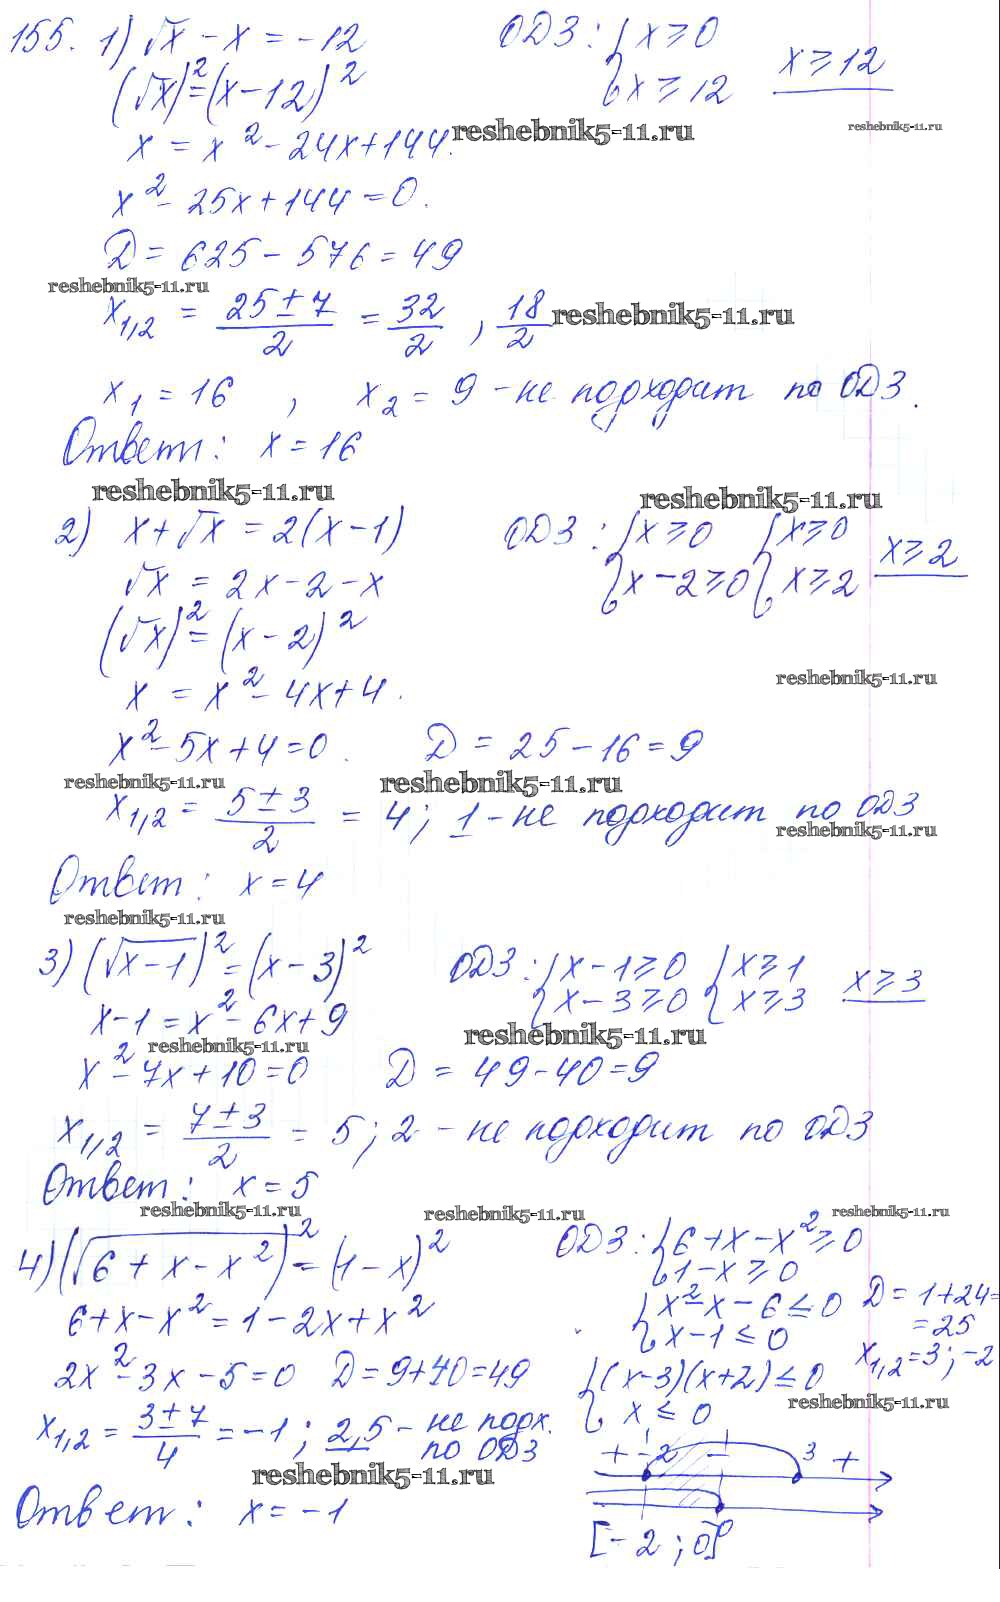 155. 1) √x - x = -12    ОДЗ: { x ≥ 0
(√x)² = (x-12)²    { x ≥ 12    x ≥ 12
reshebnik5-11.ru    reshebnik5-11.ru
x = x² - 24x + 144.
x² - 25x + 144 = 0.
Д = 625 - 576 = 49
reshebnik5-11.ru
x₁,₂ = (25 ± 7)/2 = 32/2 , 18/2 reshebnik5-11.ru
x₁ = 16 , x₂ = 9 - не подходит по ОДЗ.
Ответ: x = 16
reshebnik5-11.ru    reshebnik5-11.ru
2) x + √x = 2(x-1)    ОДЗ: { x ≥ 0  { x ≥ 0    x ≥ 2
√x = 2x - 2 - x    { x - 2 ≥ 0  { x ≥ 2
(√x)² = (x-2)²
reshebnik5-11.ru
x = x² - 4x + 4.
x² - 5x + 4 = 0.    Д = 25 - 16 = 9
reshebnik5-11.ru    reshebnik5-11.ru
x₁,₂ = (5 ± 3)/2 = 4; 1 - не подходит по ОДЗ
reshebnik5-11.ru
Ответ: x = 4
reshebnik5-11.ru
3) (√(x-1))² = (x-3)²    ОДЗ: { x - 1 ≥ 0  { x ≥ 1    x ≥ 3
x - 1 = x² - 6x + 9    { x - 3 ≥ 0  { x ≥ 3
reshebnik5-11.ru    reshebnik5-11.ru
x² - 7x + 10 = 0    Д = 49 - 40 = 9
x₁,₂ = (7 ± 3)/2 = 5; 2 - не подходит по ОДЗ
Ответ: x = 5
reshebnik5-11.ru    reshebnik5-11.ru    reshebnik5-11.ru
4) (√(6 + x - x²))² = (1-x)²    ОДЗ: { 6 + x - x² ≥ 0
{ 1 - x ≥ 0
6 + x - x² = 1 - 2x + x²    { x² - x - 6 ≤ 0    Д = 1 + 24 =
{ x - 1 ≤ 0    = 25
2x² - 3x - 5 = 0    Д = 9 + 40 = 49    { (x-3)(x+2) ≤ 0    x₁,₂ = 3; -2
reshebnik5-11.ru
x₁,₂ = (3 ± 7)/4 = -1; 2,5 - не подх.    { x ≤ 0
по ОДЗ
+ -2 - 3 +
reshebnik5-11.ru
Ответ: x = -1
[-2; 0]